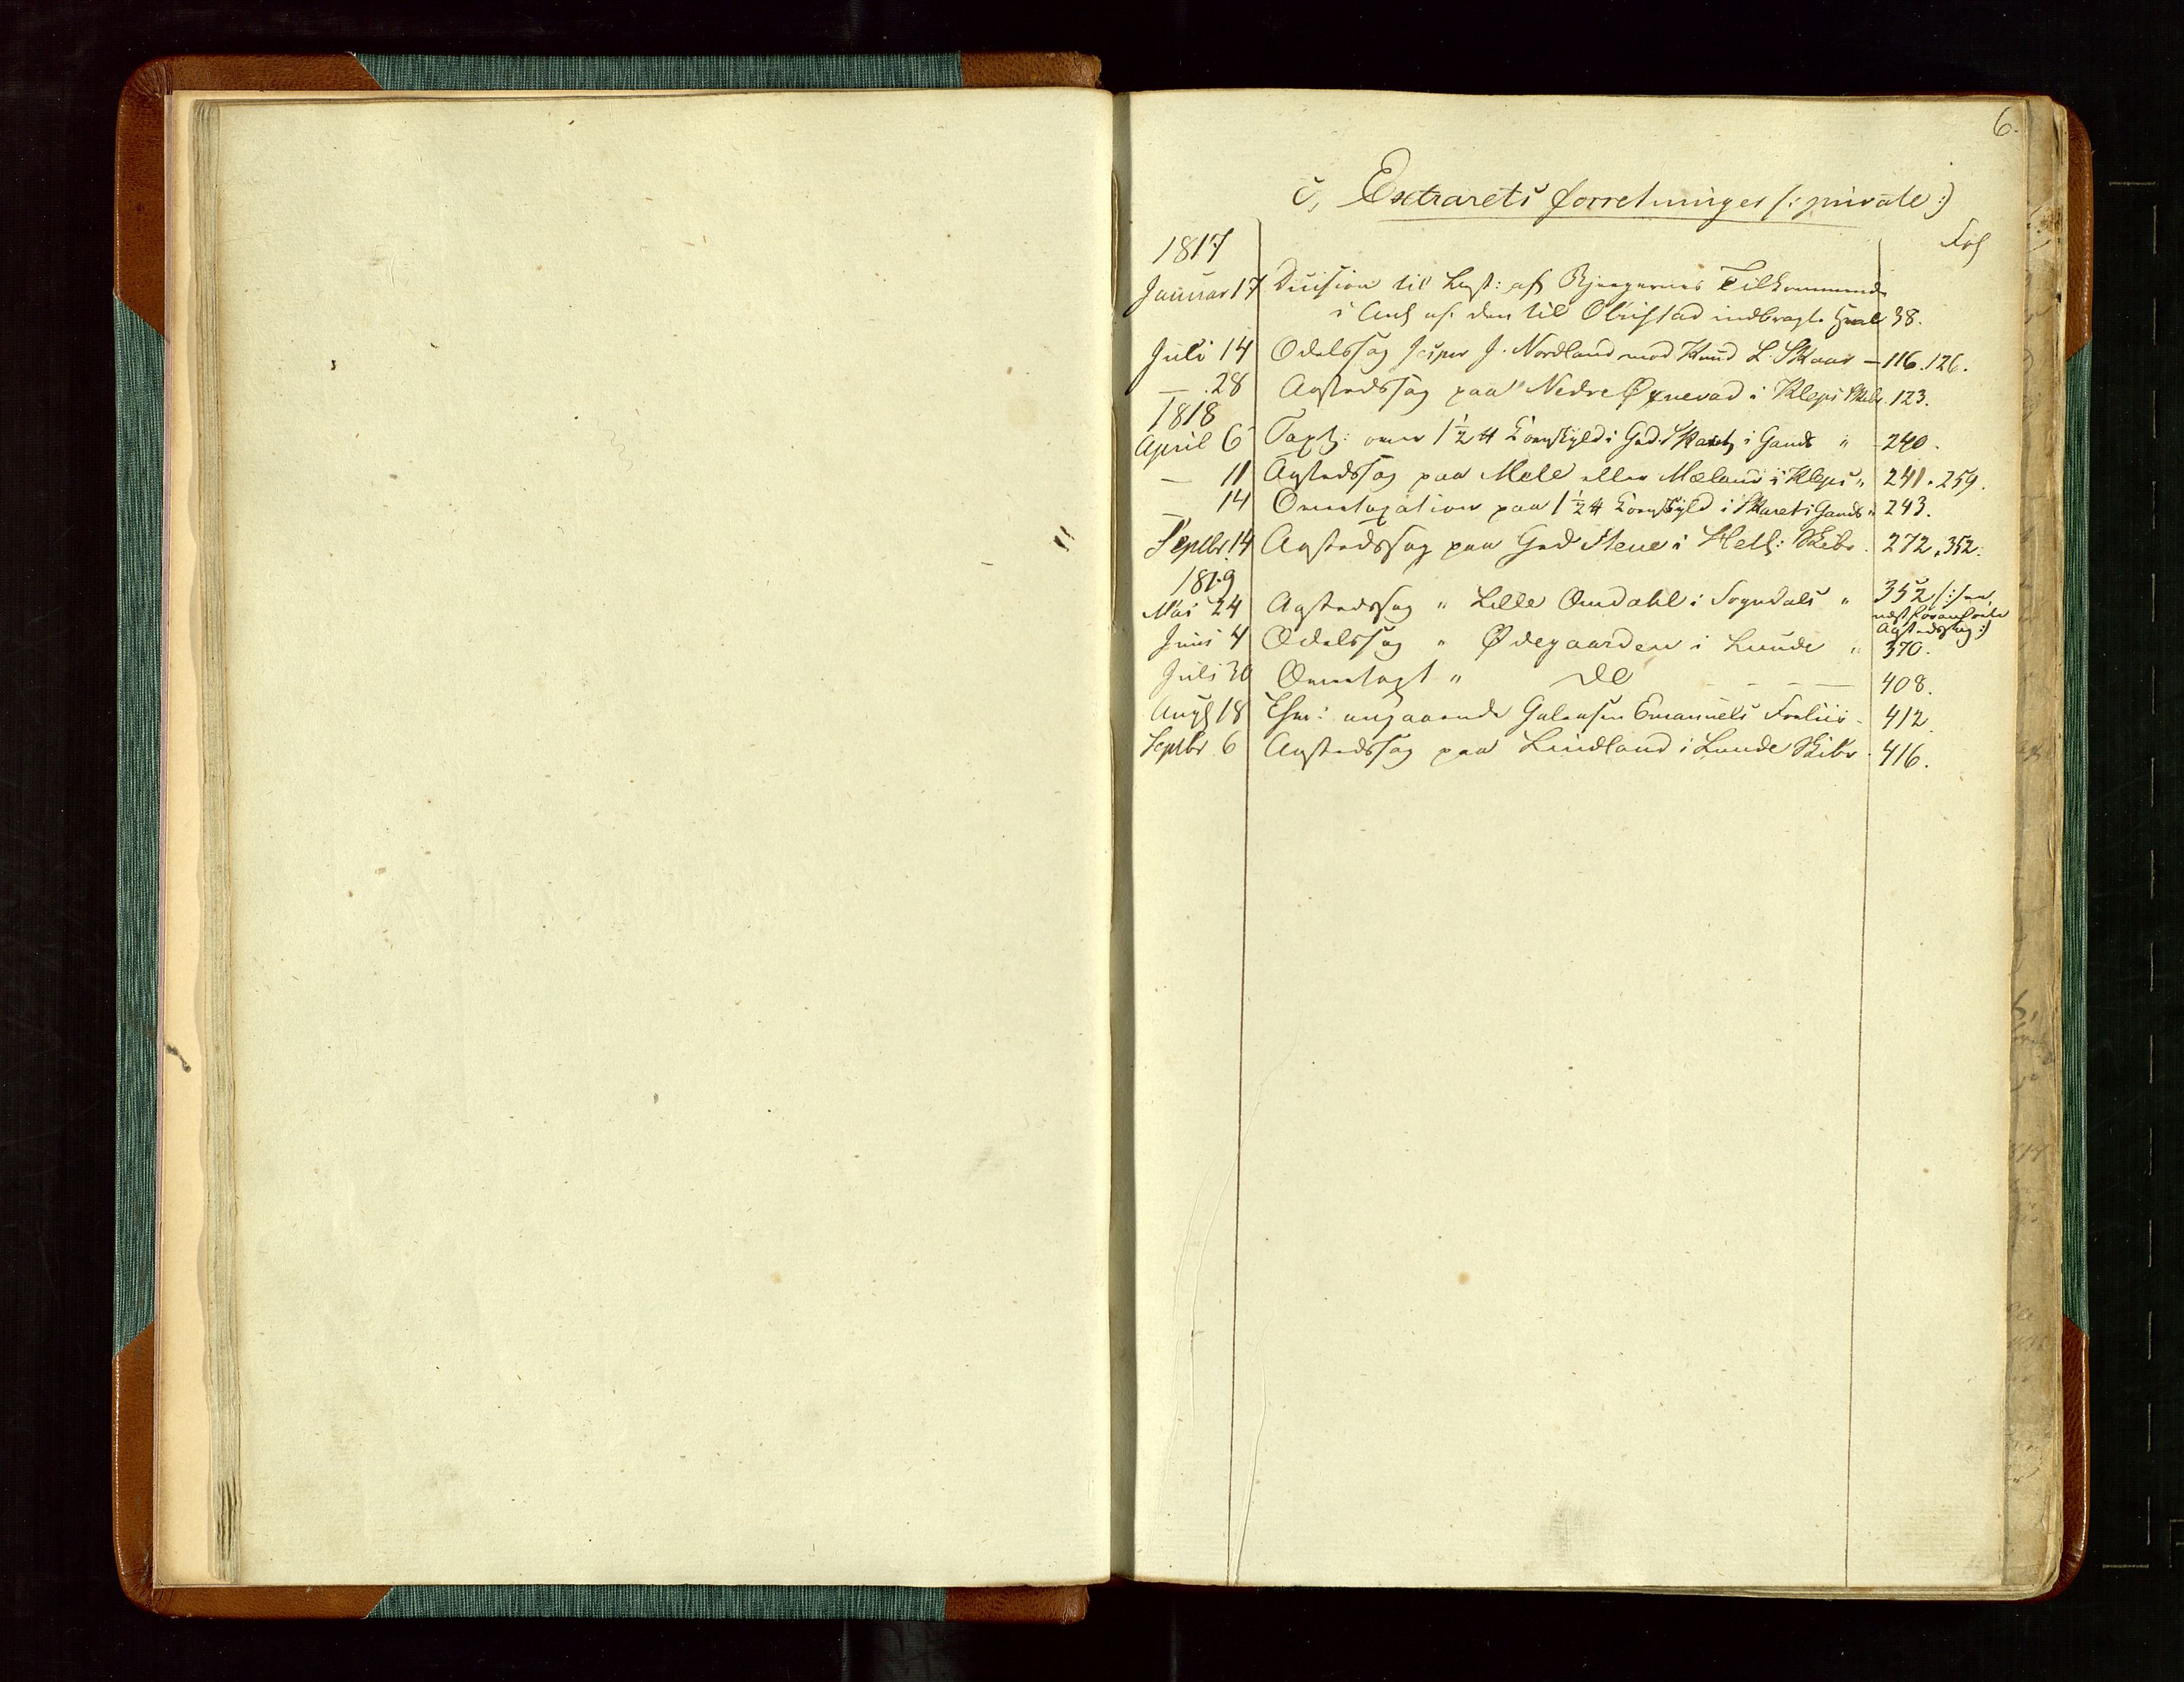 6.
c, Extrarets forretninger (: private :)
1817 Fol
Januar 17 Decision til Best: af Bjergernes Tilkommende
i Anl af den til Obrestad indbragte Hval 38.
Juli 14 Odelssag Jesper J. Nordland mod Knud L. Skaar - 116. 126.
— 28 Aastedssag paa Nedre Øxnevad i Kleps Skibr. 123.
1818
April 6 Taxt: over 1½ # Kornskyld i Grd. i Gands " 240.
— 11 Aastedssag paa Mele eller Mæland i Kleps " 241. 259.
— 14 Omtaxation paa 1½ # Kornskyld i Skaret i Gands " 243.
Septbr. 14 Aastedssag paa Grd Stene i Hetl: Skibr. 272. 352.
1819
Mai 24 Aastedssag " Lille Omdahl i Sogndals " 352 (: see
næst foranførte
Aastedssag :)
Juni 4 Odelssag " Ødegaarden i Lunde " 370.
Juli 30 Omtaxt " do — — — 408.
Augs 18 angaaende Galeasen Emanuels Forliis - 412.
Septbr. 6 Aastedssag paa Lindland i Lunde Skibr. 416.